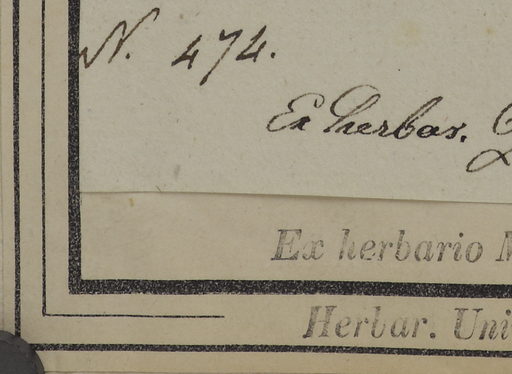 N. 474.
Ex herbar.
Ex herbario M
Herbar. Uni